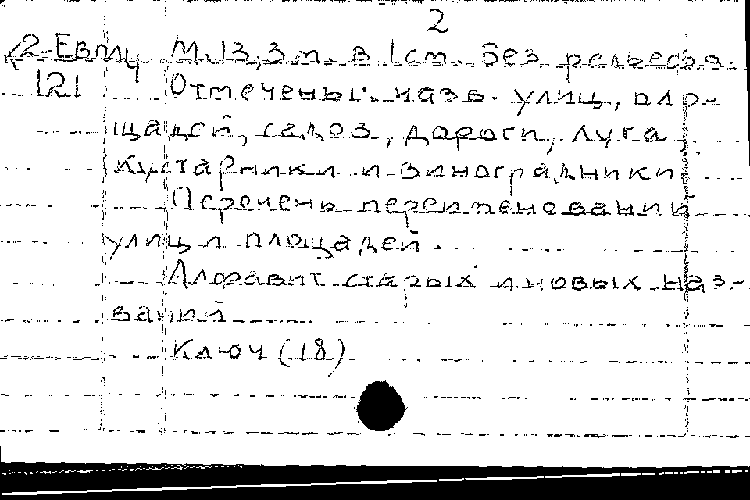 2
2-Евпч М. 13,3 м. в 1 см. без рельефа.
121 Отмечены: назв. улиц, пло-
щадей, садов, дороги, луга
кустарники и виноградники
Перечень переименований
улиц и площадей.
Алфавит старых и новых наз-
ваний
Ключ (18)